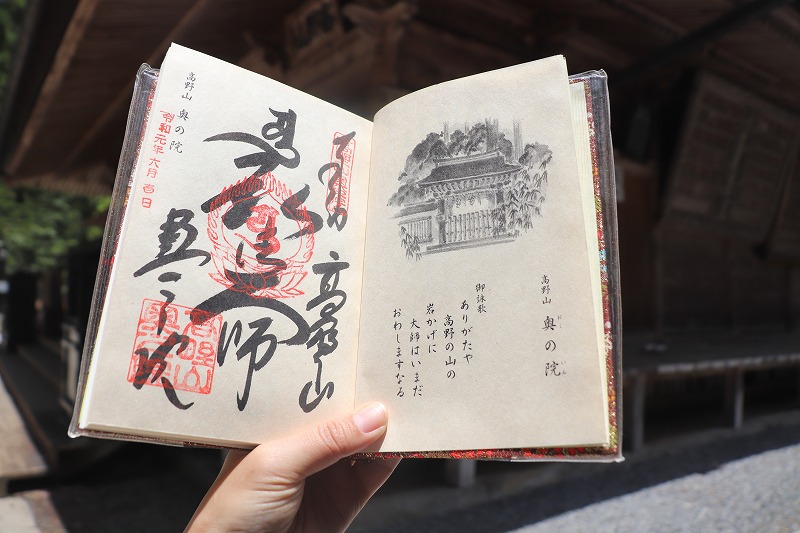 高野山 奥の院
御詠歌
ありがたや
高野の山の
岩かげに
大師はいまだ
おわしますなる
高野山
奥之院
高野山 奥の院
令和元年六月吉日